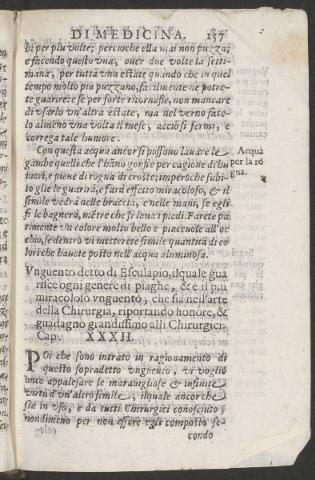 DI MEDICINA. 137
di per piu volte; percioche ella mai non puzza;
e facendo questo vna, ouer due volte la setti-
mana, per tutta vna estate quando che in quel
tempo molto più puzzano, facilmente ne potre-
te guarire: e se per sorte ritornasse, non mancare
di vsarlo vn'altra estate, ma nel verno fate-
lo almeno vna volta il mese, acciò si fermi, e
correga tale humore.
Con questa acqua ancor si possono lauare le
gambe quelli che l'hāno gonfie per cagione di hu
mori, e piene di rogna di croste; imperoche subi-
to glie le guarirà, e farà effetto miracoloso, & il
simile vedrà nelle braccia, e nelle mani, se egli
si le bagnerà, mētre che si leua i piedi. Farete pa
rimente vn colore molto bello e piaceuole all'oc
chio, se dentro vi metterete simile quantità di co
lori che hauete posto nell'acqua aluminosa.
Acqua
per la ro
gna.
Vnguento detto di Esculapio, ilquale gua
risce ogni genere di piaghe, & è il più
miracoloso vnguento, che sia nell'arte
della Chirurgia, riportando honore, &
guadagno grandissimo alli Chirurgici.
Cap. XXXII.
POi che sono intrato in ragionamento di
questo sopradetto vnguento, vi voglio
anco appalesare le marauigliose & infinite
virtù d'vn'altro simile, ilquale ancor che
sia in vso, e da tutti Chirurgici conosciuto,
nondimeno per non essere egli composto se-
condo